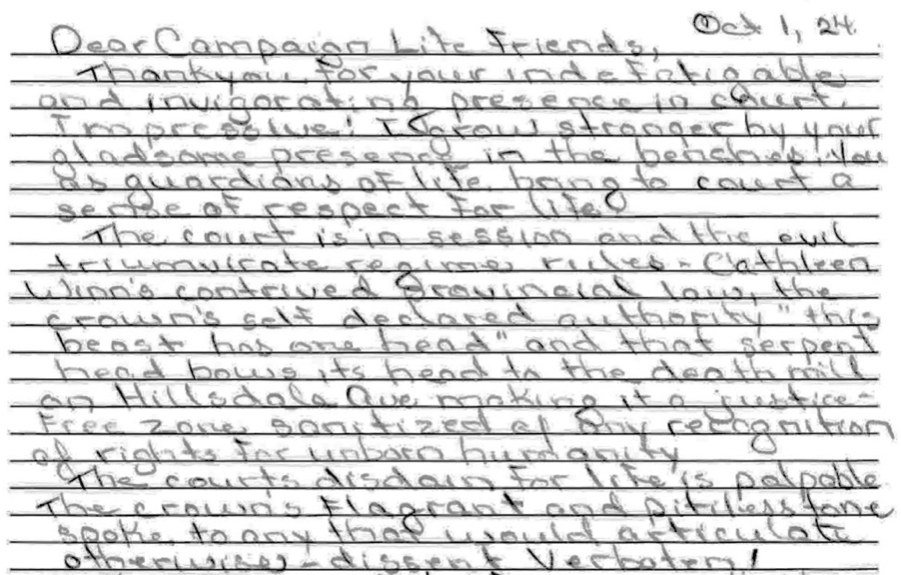 Oct 1, 24.
Dear Campaign Life Friends,
Thankyou for your indefatigable
and invigorating presence in court.
Impressive! I grow stronger by your
gladsome presence in the benches! You
as guardians of life bring to court a
sense of respect for life!
The court is in session and the evil
triumvirate regime rules - Cathleen
Winn's contrived Provincial law, the
crown's self declared authority "this
beast has one head" and that serpent
head bows its head to the death mill
on Hillsdale Ave making it a justice-
free zone sanitized of any recognition
of rights for unborn humanity
The courts disdain for life is palpable
The crown's flagrant and pitiless tone
spoke to any that would articulate
otherwise - dissent Verboten!